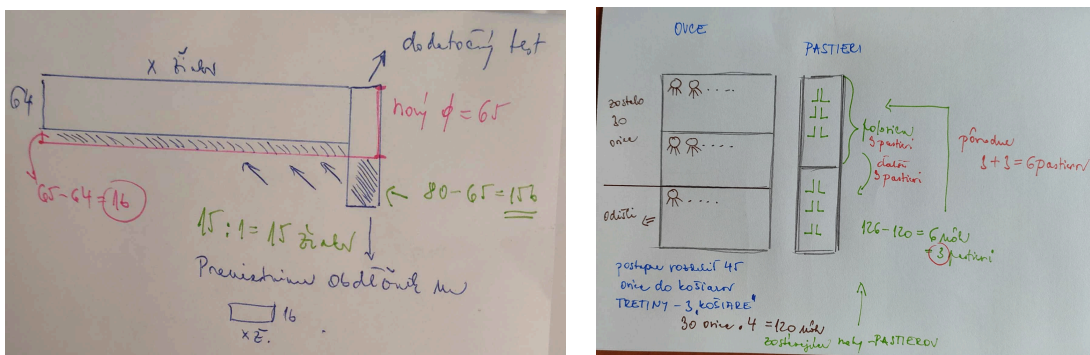 dodatočný test
x žiakov
64
nový ϕ = 65
65-64=1b
80-65=15b
15:1=15 žiakov
Premiestnime obdĺžnik
1b
x ž.
OVCE
PASTIERI
zostalo
30
ovce
odišli
polovica
3 pastieri
ďalší
3 pastieri
pôvodne
3+3=6 pastierov
126-120=6 nôh
=3 pastieri
postupne rozdeliť 45
ovce do košiarov
TRETINY - 3 „KOŠIARE"
30 ovce . 4 = 120 nôh
nohy - PASTIEROV